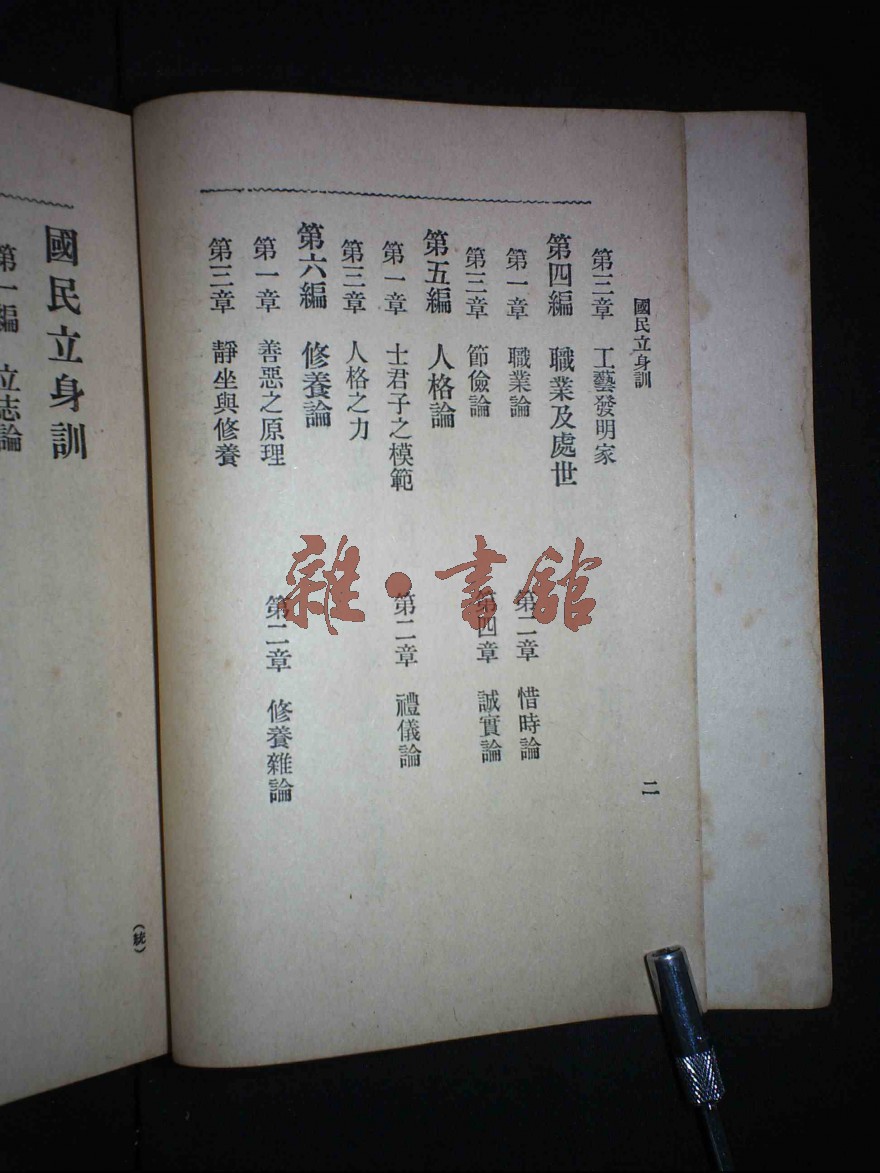 國民立身訓 二
第三章 工藝發明家
第四編 職業及處世
第一章 職業論 第二章 惜時論
第三章 節儉論 第四章 誠實論
第五編 人格論
第一章 士君子之模範 第二章 禮儀論
第三章 人格之力
第六編 修養論
第一章 善惡之原理 第二章 修養雜論
第三章 靜坐與修養
(統)
國民立身訓
第一編 立志論
雜·書館